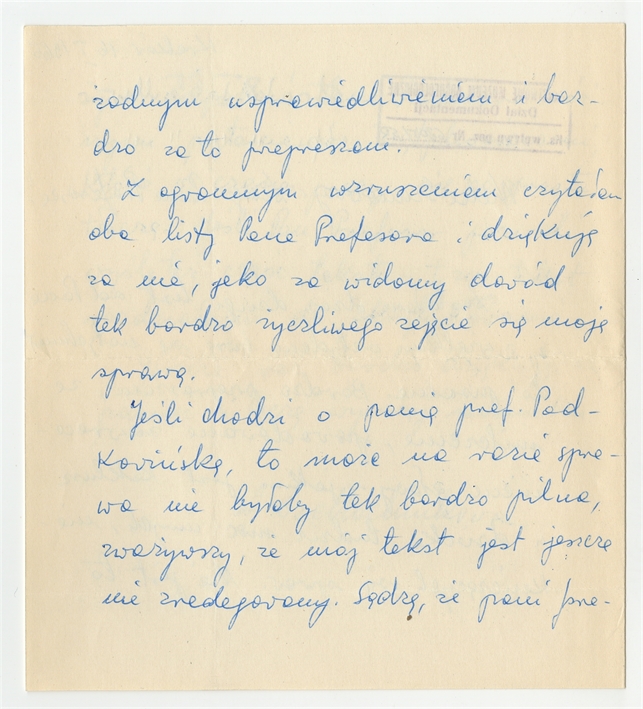 żadnym usprawiedliwieniem i bar-
dzo za to przepraszam.
Z ogromnym wzruszeniem czytałam
oba listy Pana Profesora i dziękuję
za nie, jako za widomy dowód
tak bardzo życzliwego zajęcie się moją
sprawą.
Jeśli chodzi o panią prof. Pod-
Kowińską, to może na razie spra-
wa nie byłaby tak bardzo pilna,
zważywszy, że mój tekst jest jeszcze
nie zredagowany. Sądzę, że pani
Dział Dokumentacji